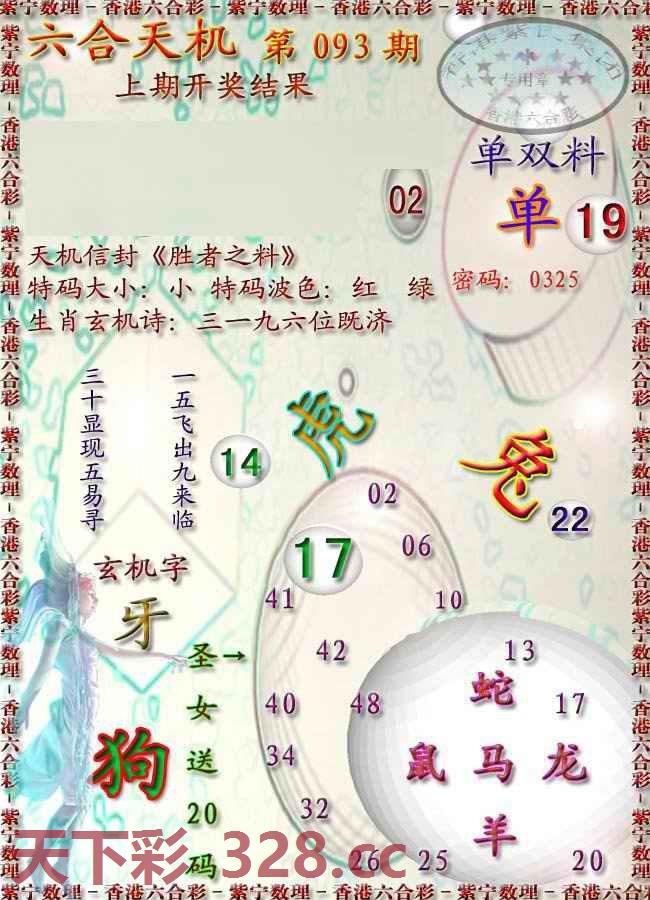 紫宁数理－香港六合彩－紫宁数理－香港六合彩－紫宁数理－香港六合彩
六合天机 第 093 期
上期开奖结果
香港紫氏集团
专用章
香港六合彩
单双料
单 19
02
天机信封《胜者之料》
特码大小：小 特码波色：红 绿
密码：0325
生肖玄机诗：三一九六位既济
一五飞出九来临
三十显现五易寻
虎
兔
14
22
17
02
06
41
10
玄机字
牙
圣女送20码
→
42
13
40
48
蛇
17
狗
34
鼠 马 龙
32
羊
26
25
20
天下彩.328.cc
紫宁数理－香港六合彩－紫宁数理－香港六合彩－紫宁数理－香港六合彩